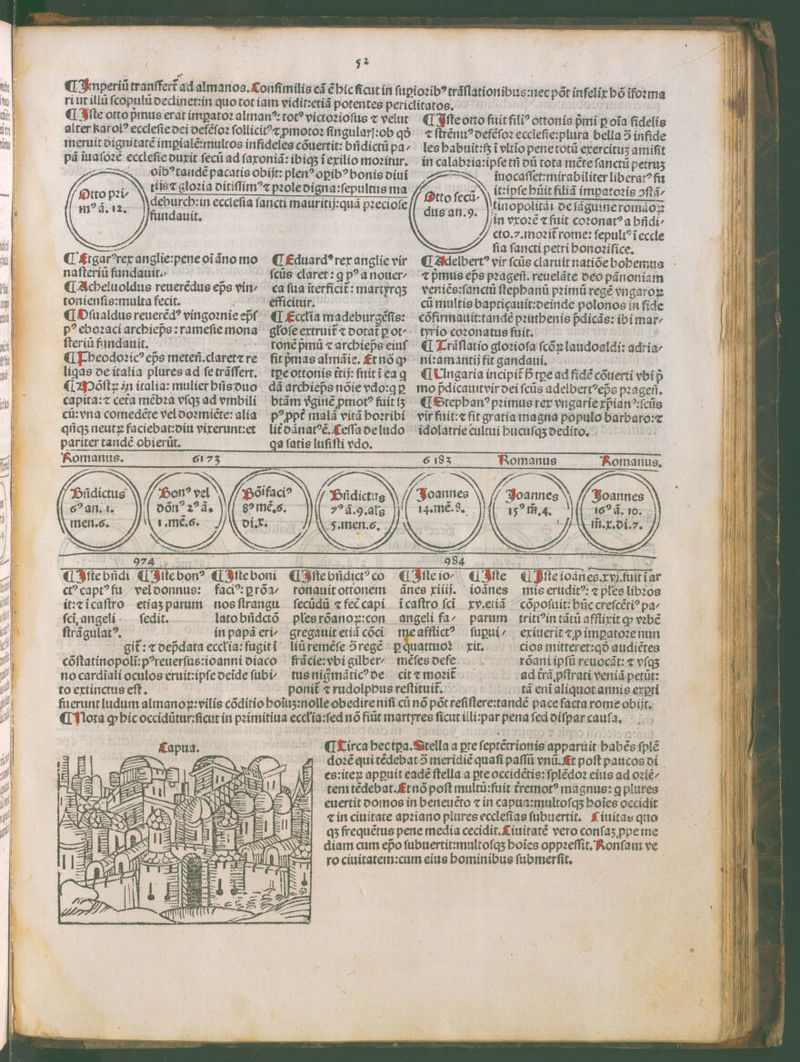 52
¶Imperiũ tranſſert̃ ad almanos. Conſimilis cã ẽ hic ſicut in ſupioribꝰ trãſlationibus: nec põt infelix hõ ĩforma
ri ut iliũ ſcopulũ declinet: in quo tot iam vidit: etiã potentes periclitatos.
¶Iſte otto p̃mus erat imꝑator almanꝰ: totꝰ victorioſus ⁊ velut
alter karolꝰ eccleſie dei defẽſor ſollicitꝰ ⁊ ꝓmotor ſingularꝭ: ob qð
meruit dignitatẽ imꝑialẽ: multos infideles cõuertit: bñdictũ pa-
pã inuaſorẽ eccleſie duxit ſecũ ad ſaxoniã: ibiqꝫ ĩ exilio moritur.
oĩbꝰ tandẽ pacatis obijt: plenꝰ oꝑibꝰ bonis diui
tiis ⁊ gloria ditiſſimꝰ ⁊ prole digna: ſepultus ma
deburch: in eccleſia ſancti mauritij: quã precioſe
fundauit.
Otto pri-
mꝰ ã. 12.
¶Iſte otto fuit filiꝰ ottonis p̃mi ꝑ oĩa fidelis
⁊ ſtrẽnuꝰ defẽſor eccleſie: plura bella ɔ̃ infide
les habuit: ſꝫ ĩ vltio pene totũ exercituꝫ amiſit
in calabria: ipſe tñ dũ tota mẽte ſanctũ petruꝫ
inuocaſſet: mirabiliter liberatꝰ fu
it: ipſe hũit filiã imꝑatoris ɔſtã-
tinopolitãi de ſãguine romãoꝝ
in vxorẽ ⁊ fuit coronatꝰ a bñdi-
cto. 7. morit̃ rome: ſepultꝰ ĩ eccle
ſia ſancti petri honorifice.
Otto ſecũ-
dus an. 9.
¶Etgarꝰ rex anglie: pene oĩ ãno mo
naſteriũ fundauit.
¶Acheluoldus reuerẽdus ep̃s vin-
tonienſis: multa fecit.
¶Oſualdus reuerẽdꝰ vingornie ep̃ſ
pꝰ eboraci archiep̃s: rameſie mona
ſteriũ fundauit.
¶Theodoricꝰ ep̃s meteñ. claret ⁊ re
liqas de italia plures ad ſe trãſſert.
¶Mõſtꝝ in italia: mulier hñs duo
capita: ⁊ cet̃a mẽbra vſqꝫ ad vmbili
cũ: vna comedẽte vel dormiẽte: alia
qñqꝫ neutꝝ faciebat: diu vixerunt: et
pariter tandẽ obierũt.
¶Eduardꝰ rex anglie vir
ſcũs claret: q pꝰ a nouer-
ca ſua ĩterficit̃: martyrqꝫ
efficitur.
¶Eccl̃ia madeburgẽſis:
gl̃oſe extruit̃ ⁊ dotat̃ ꝑ ot-
tonẽ pmũ ⁊ archiep̃s eiuſ
fit p̃mas almãie. Et nõ ꝙ
tꝑe ottonis t̃tij: fuit ĩ ea q
dã archiep̃s nõie vdo: q ꝑ
btãm ṽginẽ ꝓmotꝰ fuit ſꝫ
pꝰ ꝓpt̃ malã vitã horribi
lit̃ dãnatꝰ ẽ. Ceſſa de ludo
qa ſatis luſiſti vdo.
¶Adelbertꝰ vir ſcũs claruit natiõe bohemus
⁊ p̃mus ep̃s pragen̄. reuelãte deo pãnoniam
veniẽs: ſanctũ ſtephanũ primũ regẽ vngaroꝝ
cũ multis baptiçauit: deinde polonos in fide
cõfirmauit: tandẽ pruthenis p̃dicãs: ibi mar-
tyrio coronatus fuit.
¶Trãſlatio glorioſa ſcõꝝ laudoaldi: adria-
ni: amantij fit gandaui.
¶Ungaria incipit h̃ tꝑe ad fidẽ cõuerti vbi p̃
mo p̃dicauit vir dei ſcũs adelbertꝰ ep̃s pragen̄.
¶Stephanꝰ primus rex vngarie xp̃ianꝰ: ſcũs
vir fuit: ⁊ fit gratia magna populo barbaro: ⁊
idolatrie cultui hucuſqꝫ dedito.
Romanus. 6173 6183 Romanus Romanus.
Bñdictus
6ꝰ an. 1.
men. 6.
Bonꝰ vel
dõnꝰ 2ꝰ ã.
1. mẽ. 6.
Bõifaciꝰ
8ꝰ mẽ. 6.
di. x.
Bñdictus
7ꝰ ã. 9. als
5. men. 6.
Joannes
14. mẽ. 8.
Joannes
15ꝰ m̃. 4.
Joannes
16ꝰ ã. 10.
m̃. x. di. 7.
974 984
¶Iſte bñdi
ctꝰ captꝰ fu
it: ⁊ ĩ caſtro
ſci angeli
ſtrãgulatꝰ.
¶Iſte bonꝰ
vel donnus:
etiaꝫ parum
ſedit.
¶Iſte boni
faciꝰ: ꝑ rõa-
nos ſtrangu
lato bñdictõ
in papã eri-
git̃: ⁊ dep̃data eccl̃ia: fugit ĩ
cõſtatinopolĩ: pꝰ reuerſus: ioanni diaco
no cardĩali oculos eruit: ipſe deĩde ſubi-
to extinctus eſt.
¶Iſte bñdictꝰ co
ronauit ottonem
ſecũdũ ⁊ fec̃ capi
ꝑles rõanoꝝ: con
gregauit etiã cõci
liũ remẽſe ɔ̃ regẽ
frãcie: vbi gilber-
tus nigᷓmãticꝰ de
ponit̃ ⁊ rudolphus reſtituit̃.
¶Iſte io-
ãnes xiiij.
ĩ caſtro ſci
angeli fa-
me afflictꝰ
ꝑ quattuor
mẽſes defe
cit ⁊ morit̃
¶Iſte
ioãnes
xv. etiã
parum
ſupui-
xit.
¶Iſte ioãnes. xvj. fuit ĩ ar
mis eruditꝰ: ⁊ ꝑles libros
cõpoſuit: hũc creſcẽtiꝰ pa-
tritiꝰ in tãtũ afflixit ꝙ vrbẽ
exiuerit ⁊ ꝓ imꝑatore nun
cios mitteret: qð audiẽtes
rõani ipſũ reuocãt: ⁊ vſqꝫ
ad t̃rã ꝓſtrati veniã petũt:
tã eni aliquot annis exꝑti
fuerunt ludum almanoꝝ: vilis cõditio hoĩuꝫ: nolle obedire niſi cũ nõ põt reſiſtere: tandẽ pace facta rome obijt.
¶Nota ꝙ hic occidũtur: ſicut in primitiua eccl̃ia: ſed nõ fiũt martyres ſicut illi: par pena ſed diſpar cauſa.
Capua.
¶Circa hec tꝑa. Stella a ꝑte ſeptẽtrionis apparuit habẽs ſplẽ
dorẽ qui tẽdebat ɔ̃ meridiẽ quaſi paſſũ vnũ. Et poſt paucos di
es: iteꝝ appuit eadẽ ſtella a ꝑte occidẽtis: ſplẽdor eius ad oriẽ-
tem tẽdebat. Et nõ poſt multũ: fuit t̃remotꝰ magnus: q plures
euertit domos in beneuẽto ⁊ in capua: multoſqꝫ hoĩes occidit
⁊ in ciuitate apriano plures eccleſias ſubuertit. Ciuitas quo
qꝫ frequẽtus pene media cecidit. Ciuitatẽ vero conſaꝫ ꝓpe me
diam cum ep̃o ſubuertit: multoſqꝫ hoĩes oppreſſit. Ronſam ve
ro ciuitatem: cum eius hominibus ſubmerſit.